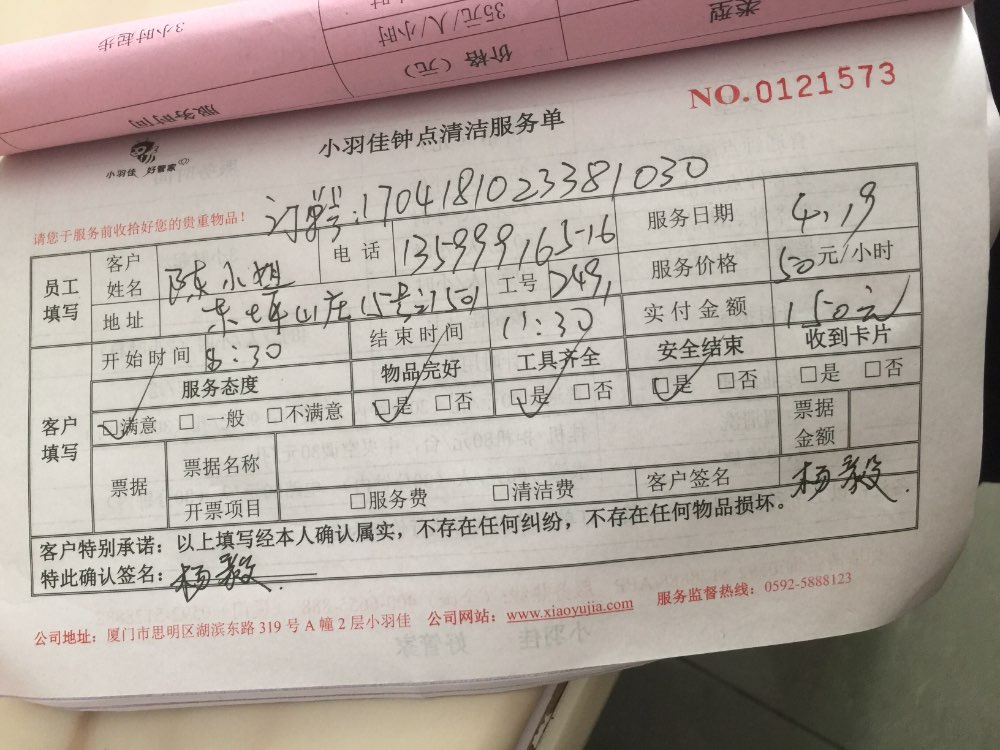 3小时起步
35元/人/小时
类型
价格（元）
服务时间
NO.0121573
小羽佳 好管家
小羽佳钟点清洁服务单
请您于服务前收拾好您的贵重物品！
订单号:1704181023381030
员工填写 客户姓名 陈小姐 电话 13599916516 服务日期 4.19
地址 东坪山庄15号之1501 工号 D491 服务价格 50元/小时
开始时间 8:30 结束时间 11:30 实付金额 150元
客户填写 服务态度 物品完好 工具齐全 安全结束 收到卡片
☑满意 □一般 □不满意 ☑是 □否 ☑是 □否 ☑是 □否 □是 □否
票据 票据名称 票据金额
开票项目 □服务费 □清洁费 客户签名 杨毅
客户特别承诺：以上填写经本人确认属实，不存在任何纠纷，不存在任何物品损坏。
特此确认签名：杨毅
公司地址：厦门市思明区湖滨东路319号A幢2层小羽佳 公司网站：www.xiaoyujia.com 服务监督热线：0592-5888123